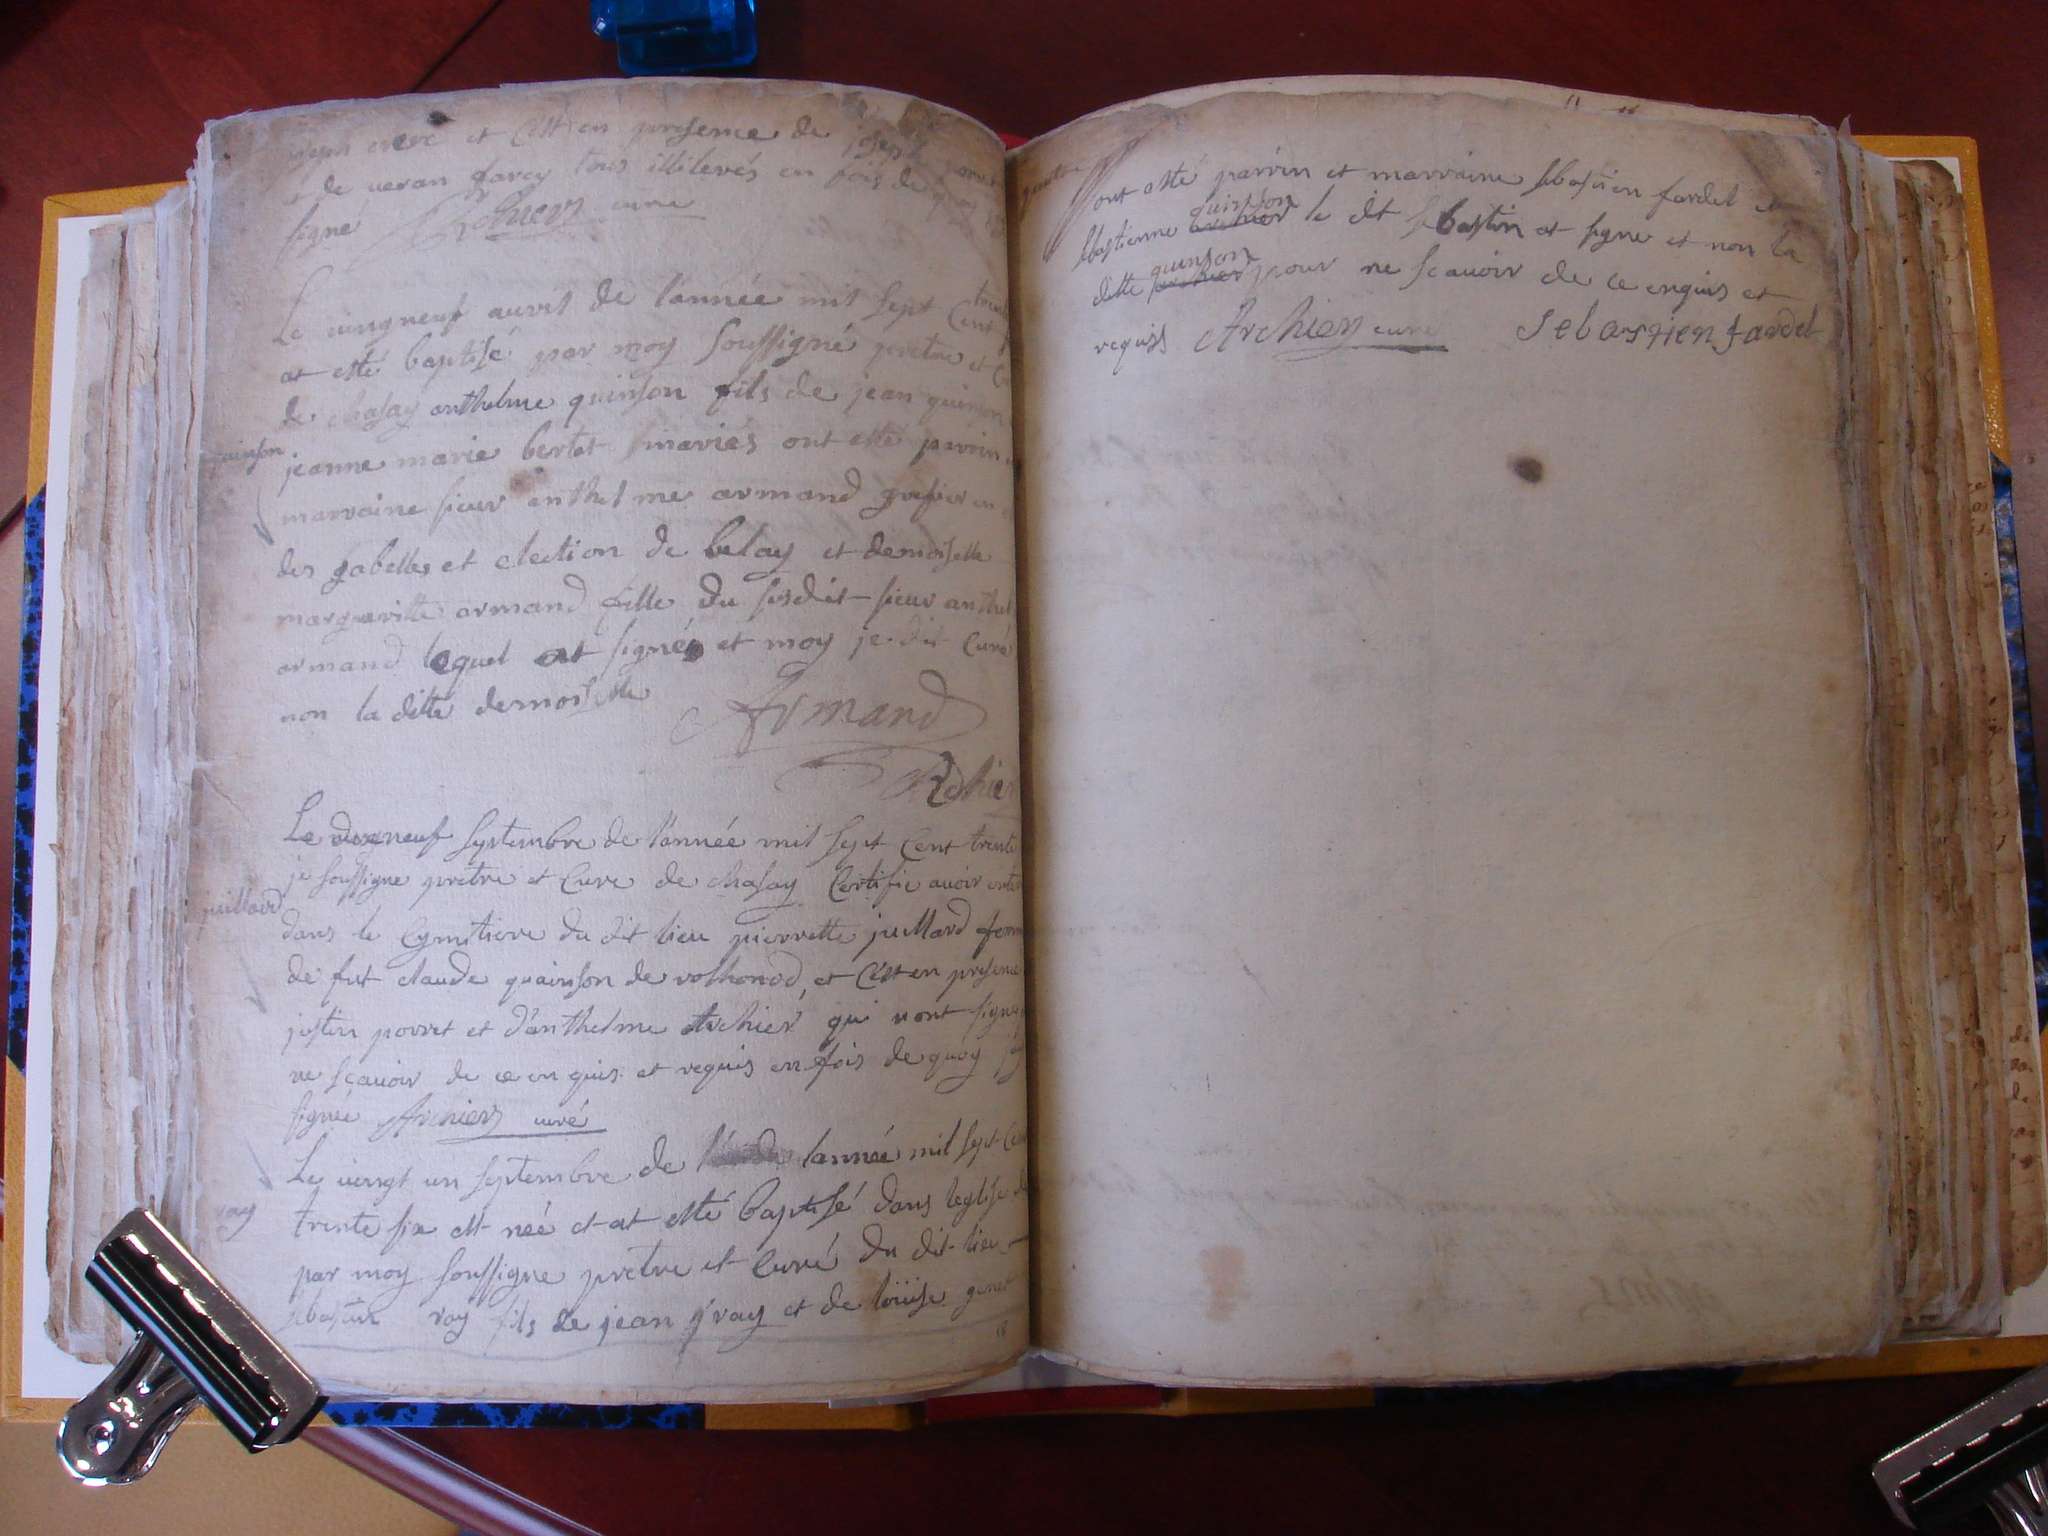 et c'est en presence de joseph
de veran farcy tous illiterés en fois de quoy
signé Archier curé
Le vingneuf avril de l'année mil sept cent
at esté baptisé par moy soussigné pretre et
quinson
de chasay anthelme quinson fils de jean quinson
jeanne marie bertet mariés ont esté parrin
marraine sieur anthelme armand grefier en
des gabelles et election de belay et demoiselle
margueritte armand fille du susdit sieur anthel
armand lequel at signés et moy je dit curé
non la ditte demoiselle
Armand
Archier
Le dixneuf septembre de l'année mil sept cent trente
je soussigne pretre et curé de chasay certifie avoir
juillard
dans le cymitiere du dit lieu pierrette juillard
de fut claude quainson de et c'est en presence
justin porret et d'anthelme Archier qui n'ont signé
ne sçavoir de ce enquis et requis en fois de quoy
signée Archier curé
Le vingt un septembre de l'année mil sept
ray
trente six est neé et at esté baptisé dans l'eglise
par moy soussigne pretre et curé du dit lieu
sebastien ray fils de jean ray et de loüise
18
ont esté parrin et marraine sebastien fardel et
sebastienne quinson le dit sebastin at signe et non la
ditte quinson pour ne scavoir de ce enquis et
requis Archier curé Sebastien fardel